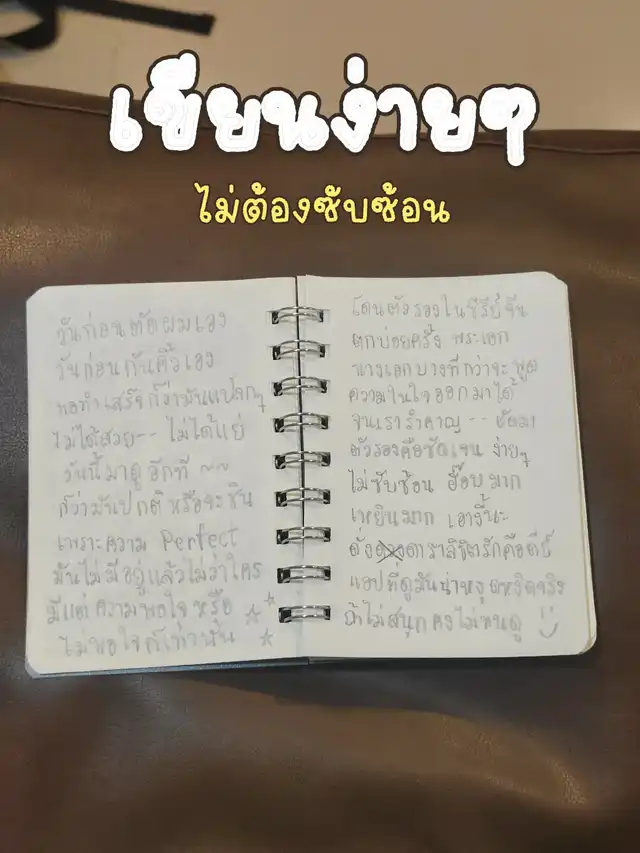 เขียนง่ายๆ
ไม่ต้องซับซ้อน
วันก่อนตัดผมเอง
วันก่อนกันคิ้วเอง
พอทำเสร็จก็ว่ามันแปลกๆ
ไม่ได้สวย-- ไม่ได้แย่
วันนี้มาดูอีกที ~~
ก็ว่ามันปกติ หรือจะชิน
เพราะความ Perfect
มันไม่มีอยู่แล้วไม่ว่าใคร
มีแต่ความพอใจ หรือ
ไม่พอใจก็เท่านั้น
โดนตัวรองในซีรีย์จีน
ตกบ่อยครั้ง พระเอก
นางเอกบางทีกว่าจะพูด
ความในใจออกมาได้
จนเรารำคาญ --
ตัวรองคือชัดเจน ง่ายๆ
ไม่ซับซ้อน ฮ็อบมาก
เหยินมาก เอางี้นะ
ดั่งดาราลิขิตรักคือดีย์
แอปที่ดูมันน่าหงุดหงิดจริง
ถ้าไม่สนุกคงไม่ทนดู